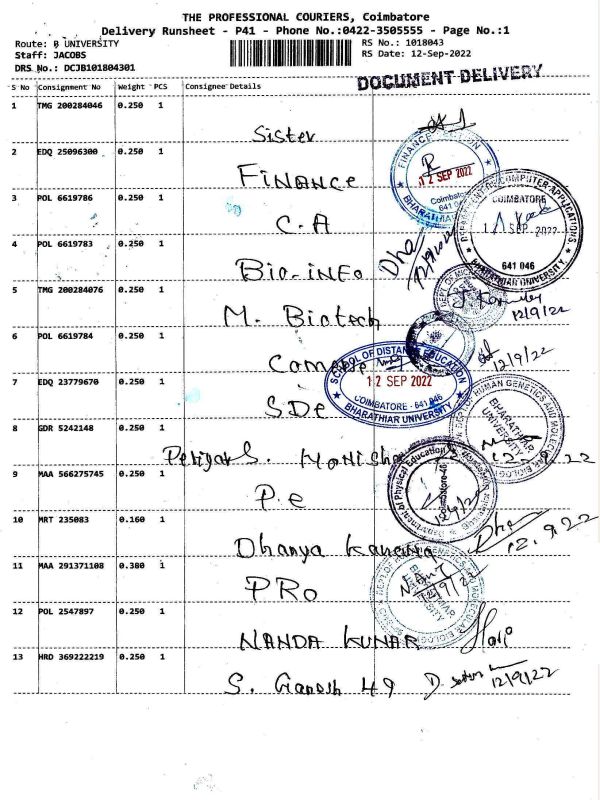 THE PROFESSIONAL COURIERS, Coimbatore
Delivery Runsheet - P41 - Phone No.:0422-3505555 - Page No.:1
Route: B UNIVERSITY
RS No.: 1018043
Staff: JACOBS
RS Date: 12-Sep-2022
DRS No.: DCJB101804301
DOCUMENT DELIVERY
S No Consignment No Weight PCS Consignee Details
1 TMG 200284046 0.250 1
Sister
2 EDQ 25096300 0.250 1
FINANCE
FINANCE SECTION
12 SEP 2022
Coimbatore
641 046
BHARATHIAR
3 POL 6619786 0.250 1
C.A
DEPARTMENT OF COMPUTER APPLICATIONS
COIMBATORE
SEP 2022
641 046
BHARATHIAR UNIVERSITY
4 POL 6619783 0.250 1
Bio-info
12/9/2022
5 TMG 200284076 0.250 1
M. Biotech
12/9/22
6 POL 6619784 0.250 1
12/9/22
7 EDQ 23779670 0.250 1
SDE
SCHOOL OF DISTANCE EDUCATION
12 SEP 2022
COIMBATORE - 641 046
BHARATHIAR UNIVERSITY
8 GDR 5242148 0.250 1
S. Monisha
DEPT OF HUMAN GENETICS AND MOLECULAR BIOLOGY
BHARATHIAR UNIVERSITY
12.9.22
9 MAA 566275745 0.250 1
P.E
Department of Physical Education
Coimbatore-46
10 MRT 235083 0.160 1
Dhanya
12.9.22
11 MAA 291371108 0.380 1
PRO
12/9/22
12 POL 2547897 0.250 1
NANDA KUMAR
13 HRD 369222219 0.250 1
S. Ganesh 49
12/9/22